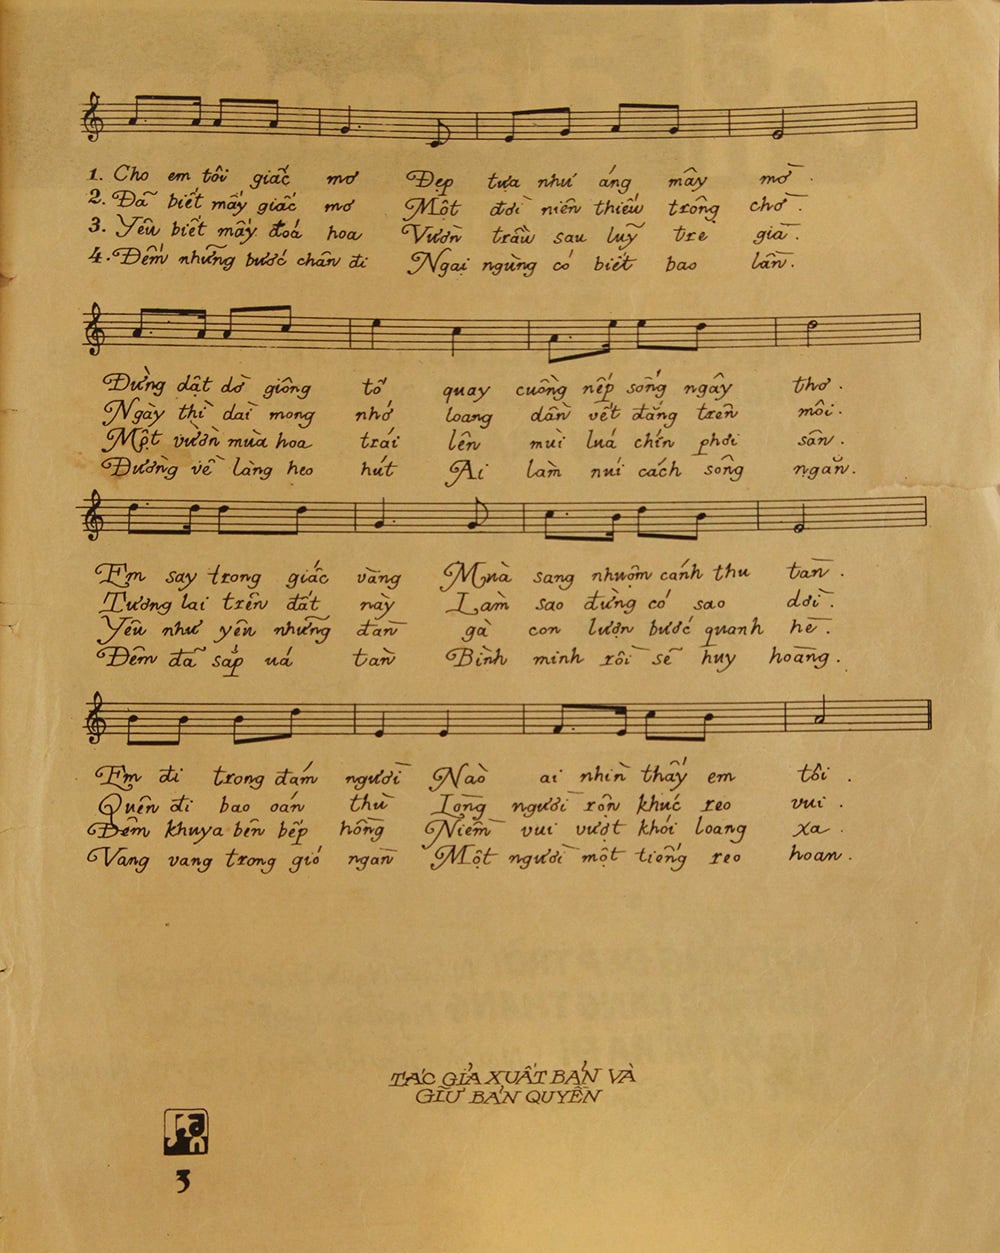 1. Cho em tôi giấc mơ Đẹp tựa như áng mây mờ.
2. Đã biết mấy giấc mơ Một đời niên thiếu trông chờ.
3. Yêu biết mấy đoá hoa Vườn trầu sau luỹ tre già.
4. Đếm những bước chân đi Ngại ngùng có biết bao lần.
Đừng dật dờ giông tố quay cuồng nếp sống ngây thơ.
Ngày thì dài mong nhớ loang dần vết đắng trên môi.
Một vườn mùa hoa trái lên mùi luá chín phơi sân.
Đường về làng heo hút Ai làm núi cách sông ngăn.
Em say trong giấc vàng Muà sang nhuôm cánh thu tàn.
Tương lai trên đất này Làm sao đừng có sao dời.
Yêu như yêu những đàn gà con lượn bước quanh hè.
Đêm đã sắp uá tàn Bình minh rồi sẽ huy hoàng.
Em đi trong đám người Nào ai nhìn thấy em tôi.
Quên đi bao oán thù Lòng người rộn khúc reo vui.
Đêm khuya bên bếp hồng Niềm vui vượt khói loang xa.
Vang vang trong gió ngàn Một người một tiếng reo hoan.
TÁC GỈA XUẤT BẢN VÀ
GĨƯ BẢN QUYỀN
3